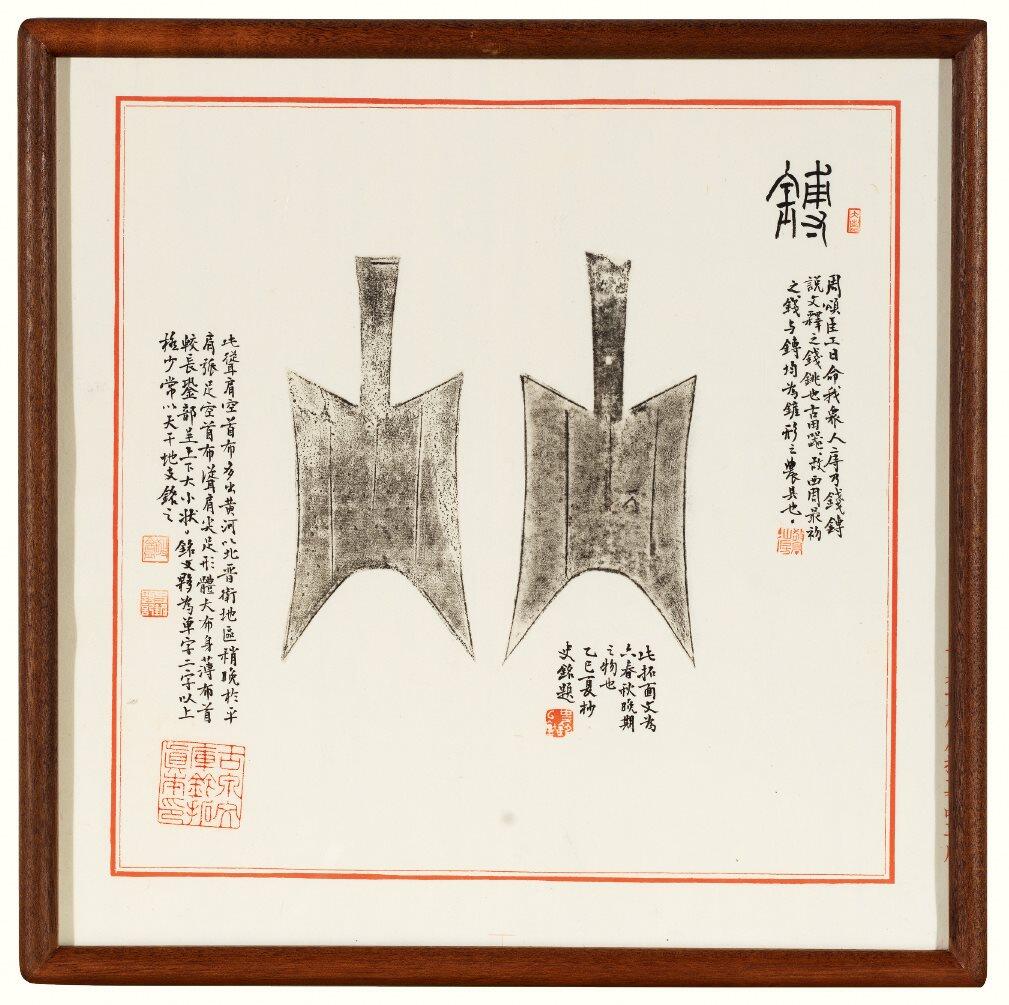 鎛
周頌臣工曰命我衆人庤乃錢鎛
説文釋之錢銚也古田噐故西周最初
之錢与鎛均為錐形之農具也
此拓面文為
六春秋晚期
之物也
乙巳夏杪
史銘題
此聳肩空首布多出黄河以北晋衛地區稍晚於平
肩弧足空首布聳肩尖足形體大布身薄布首
較長銎部呈上下大小状銘文夥為单字二字以上
極少常以天干地支銘之
古泉文
庫鈐拓
真本印